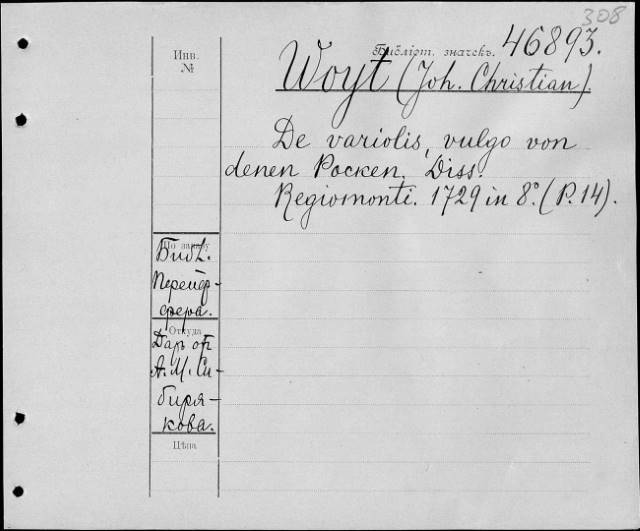 308
Библіот. значекъ. 46893.
Инв.
№
Woyt (Joh. Christian).
De variolis, vulgo von
denen Pocken. Diss.
Regiomonti. 1729 in 8º. (P. 14).
По заказу
Библ.
Перейф-
фера.
Откуда
Даръ отъ
А. М. Си-
биря-
кова.
Цѣна